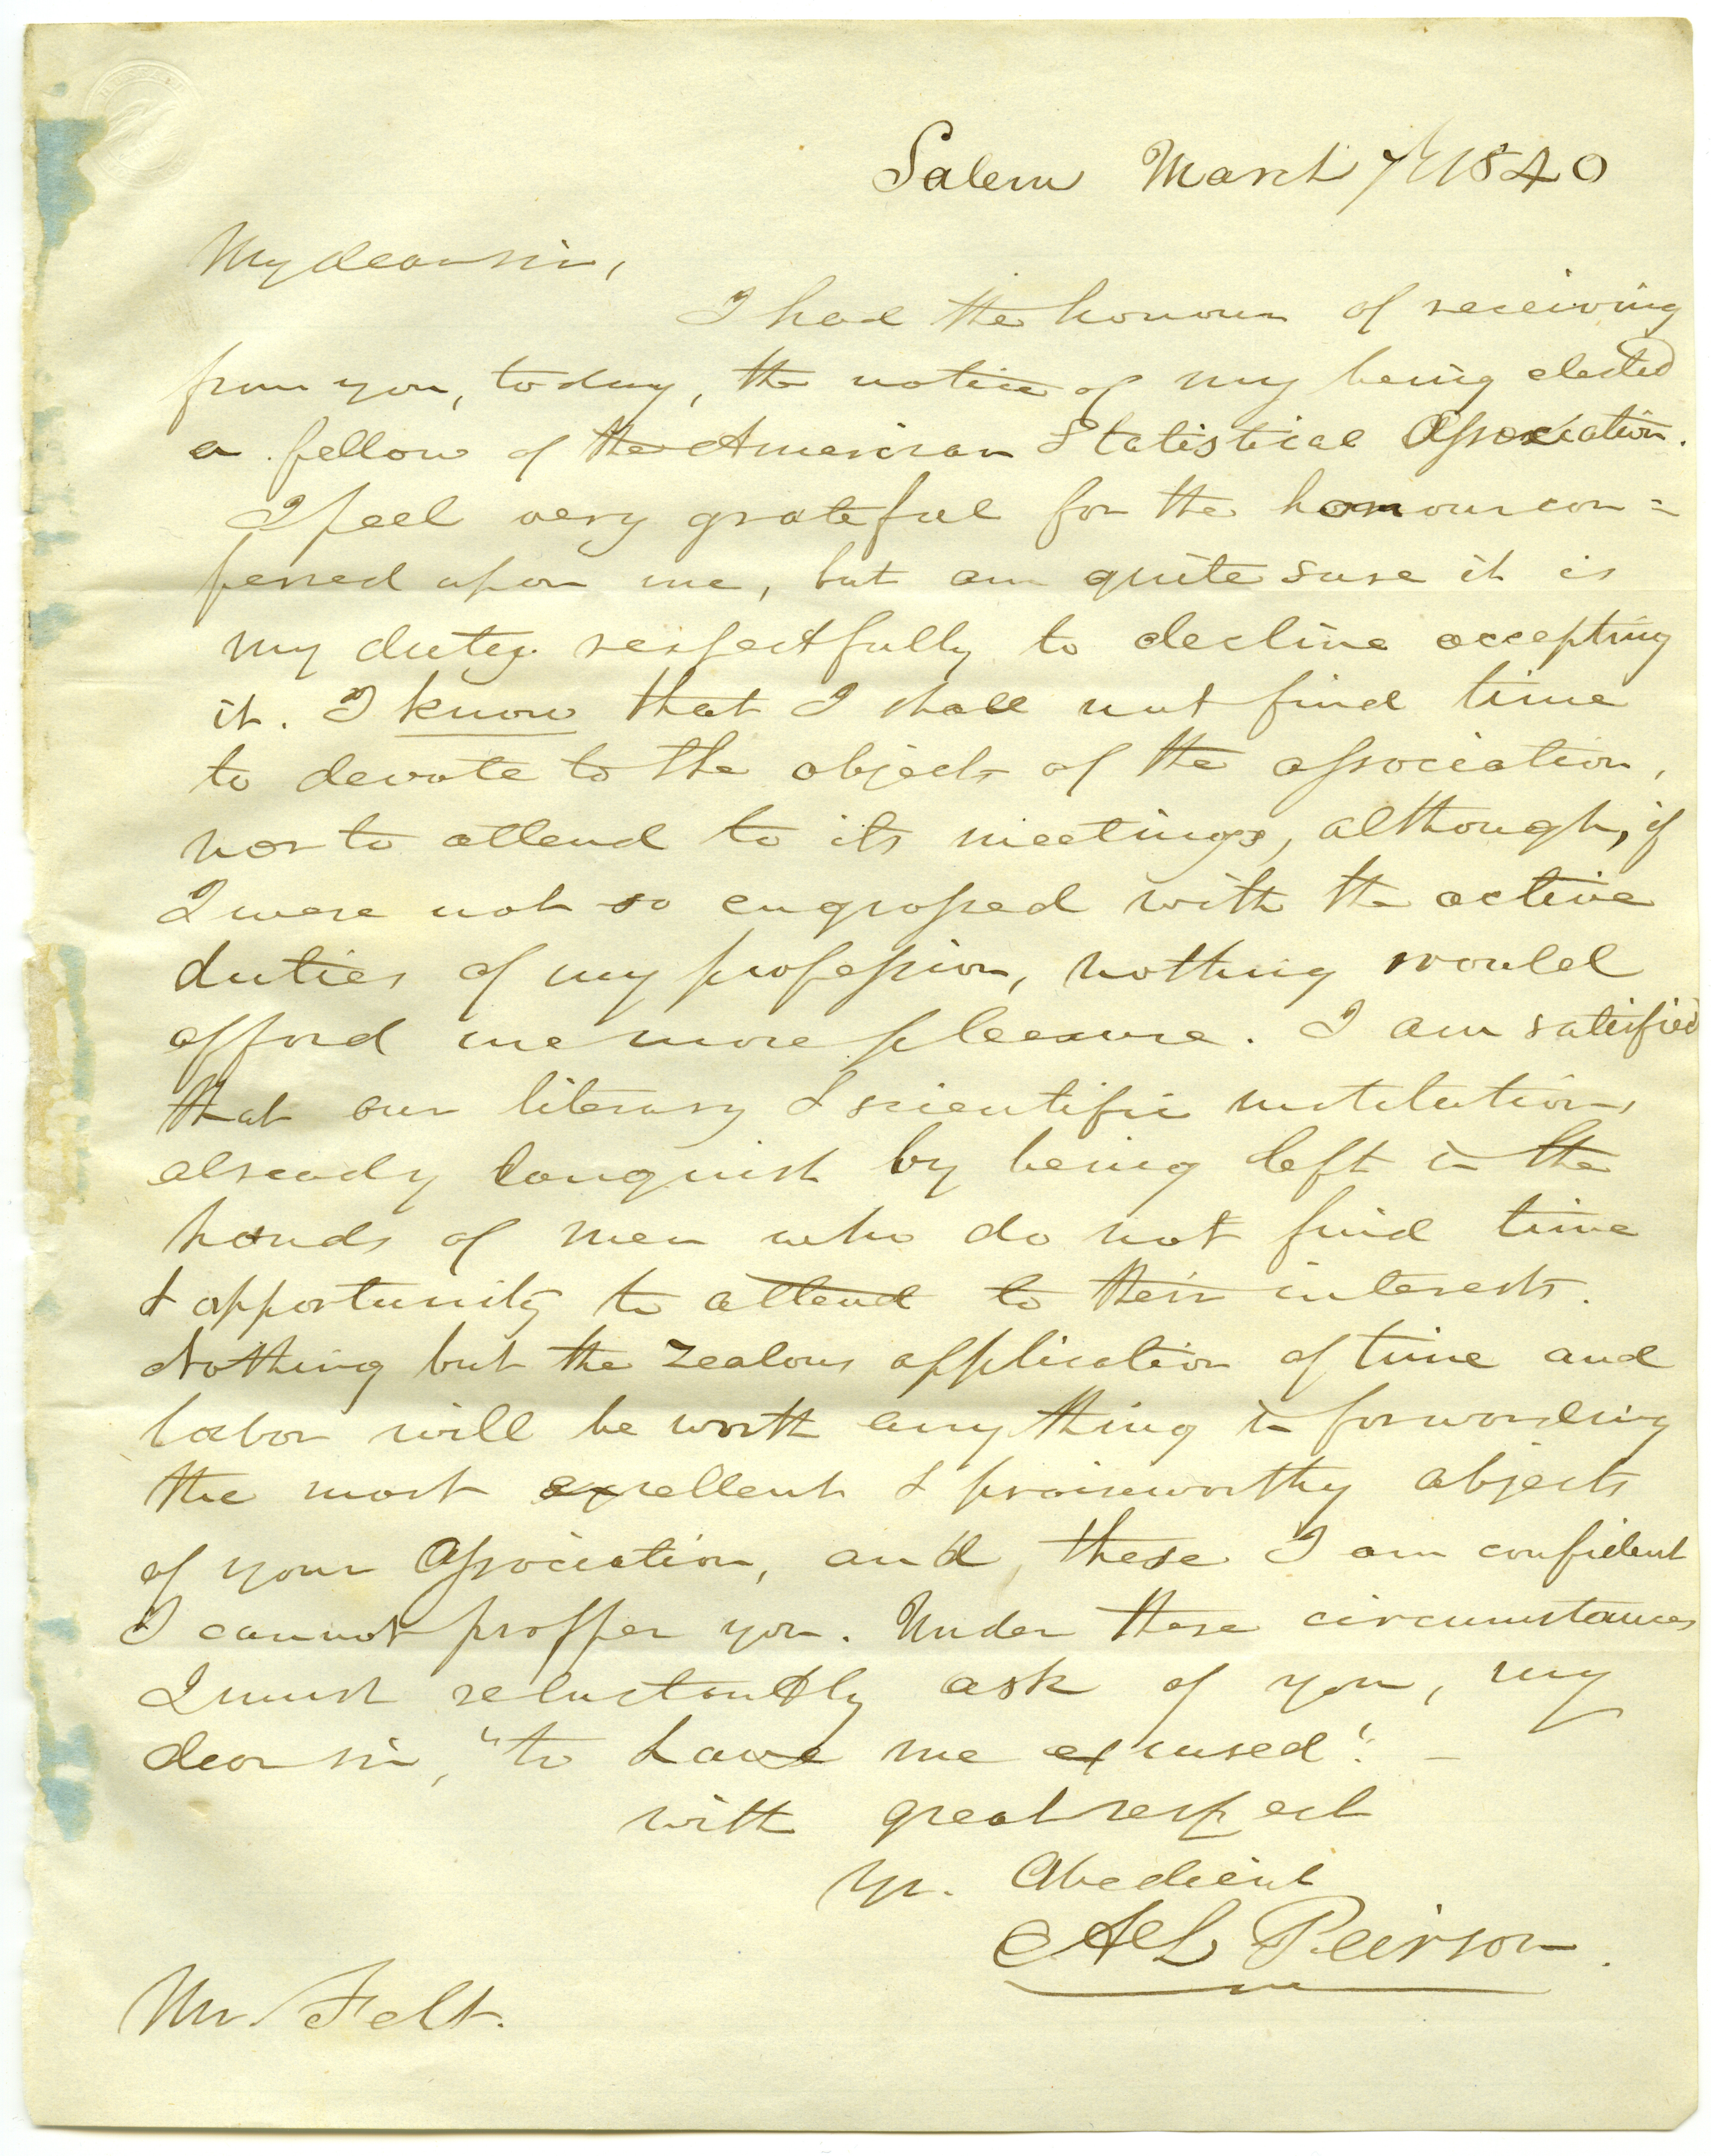 Salem March 7th 1840
My dear sir,
I had the honour of receiving
from you, today, the notice of my being elected
a fellow of the American Statistical Association.
I feel very grateful for the honour con=
ferred upon me, but am quite sure it is
my duty respectfully to decline accepting
it. I know that I shall not find time
to devote to the objects of the association,
nor to attend to its meetings, although, if
I were not so engrossed with the active
duties of my profession, nothing would
afford me more pleasure. I am satisfied
that our literary & scientific institutions
already languish by being left in the
hands of men who do not find time
& opportunity to attend to their interests.
Nothing but the zealous application of time and
labor will be worth any thing in forwarding
the most excellent & praiseworthy objects
of your Association, and, these I am confident
I cannot proffer you. Under these circumstances
I must reluctantly ask of you, my
dear sir, "to have me excused". –
with great respect
Yr. Obedient
A L Peirson.
Mr. Felt.